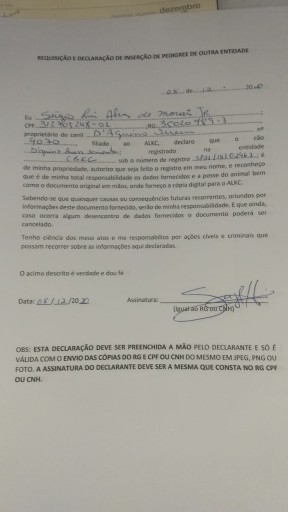 dezembro
REQUISIÇÃO E DECLARAÇÃO DE INSERÇÃO DE PEDIGREE DE OUTRA ENTIDADE
08 de 12 - 2020
Eu Sérgio Rui Alves de Morais Jr
CPF RG
proprietário do canil D'Aquino nº
9070 filiado ao ALKC, declaro que o cão
registrado na entidade
CBKC sob o número de registro é
de minha propriedade, autorizo que seja feito o registro em meu nome, e reconheço
que é de minha total responsabilidade os dados fornecidos e a posse do animal bem
como o documento original em mãos, onde forneço a cópia digital para o ALKC.
Sabendo-se que quaisquer causas ou consequências futuras recorrentes, oriundos por
informações deste documento fornecido, serão de minha responsabilidade. E que ainda,
caso ocorra algum desencontro de dados fornecidos o documento poderá ser
cancelado.
Tenho ciência dos meus atos e me responsabilizo por ações cíveis e criminais que
possam recorrer sobre as informações aqui declaradas.
O acima descrito é verdade e dou fé
Data: 08/12/2020 Assinatura:
(Igual ao RG ou CNH)
OBS: ESTA DECLARAÇÃO DEVE SER PREENCHIDA A MÃO PELO DECLARANTE E SÓ É
VÁLIDA COM O ENVIO DAS CÓPIAS DO RG E CPF OU CNH DO MESMO EM JPEG, PNG OU
FOTO. A ASSINATURA DO DECLARANTE DEVE SER A MESMA QUE CONSTA NO RG CPF
OU CNH.